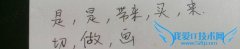 是,是,带来,买,来.
切,做,画
我爱IT技术网